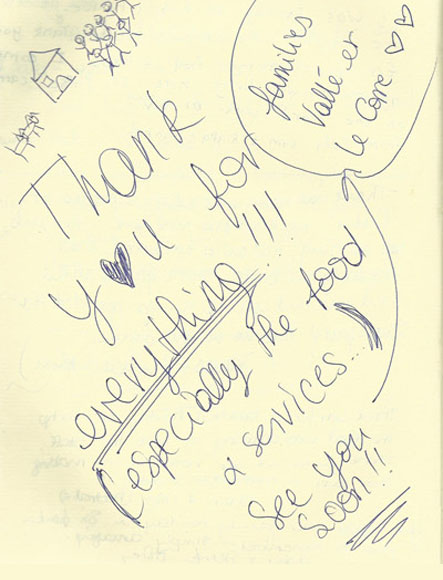 Thank
you for
everything !!!
(especially the food
& services...)
See you
Soon!!
familles
Vallé et
Le Corre